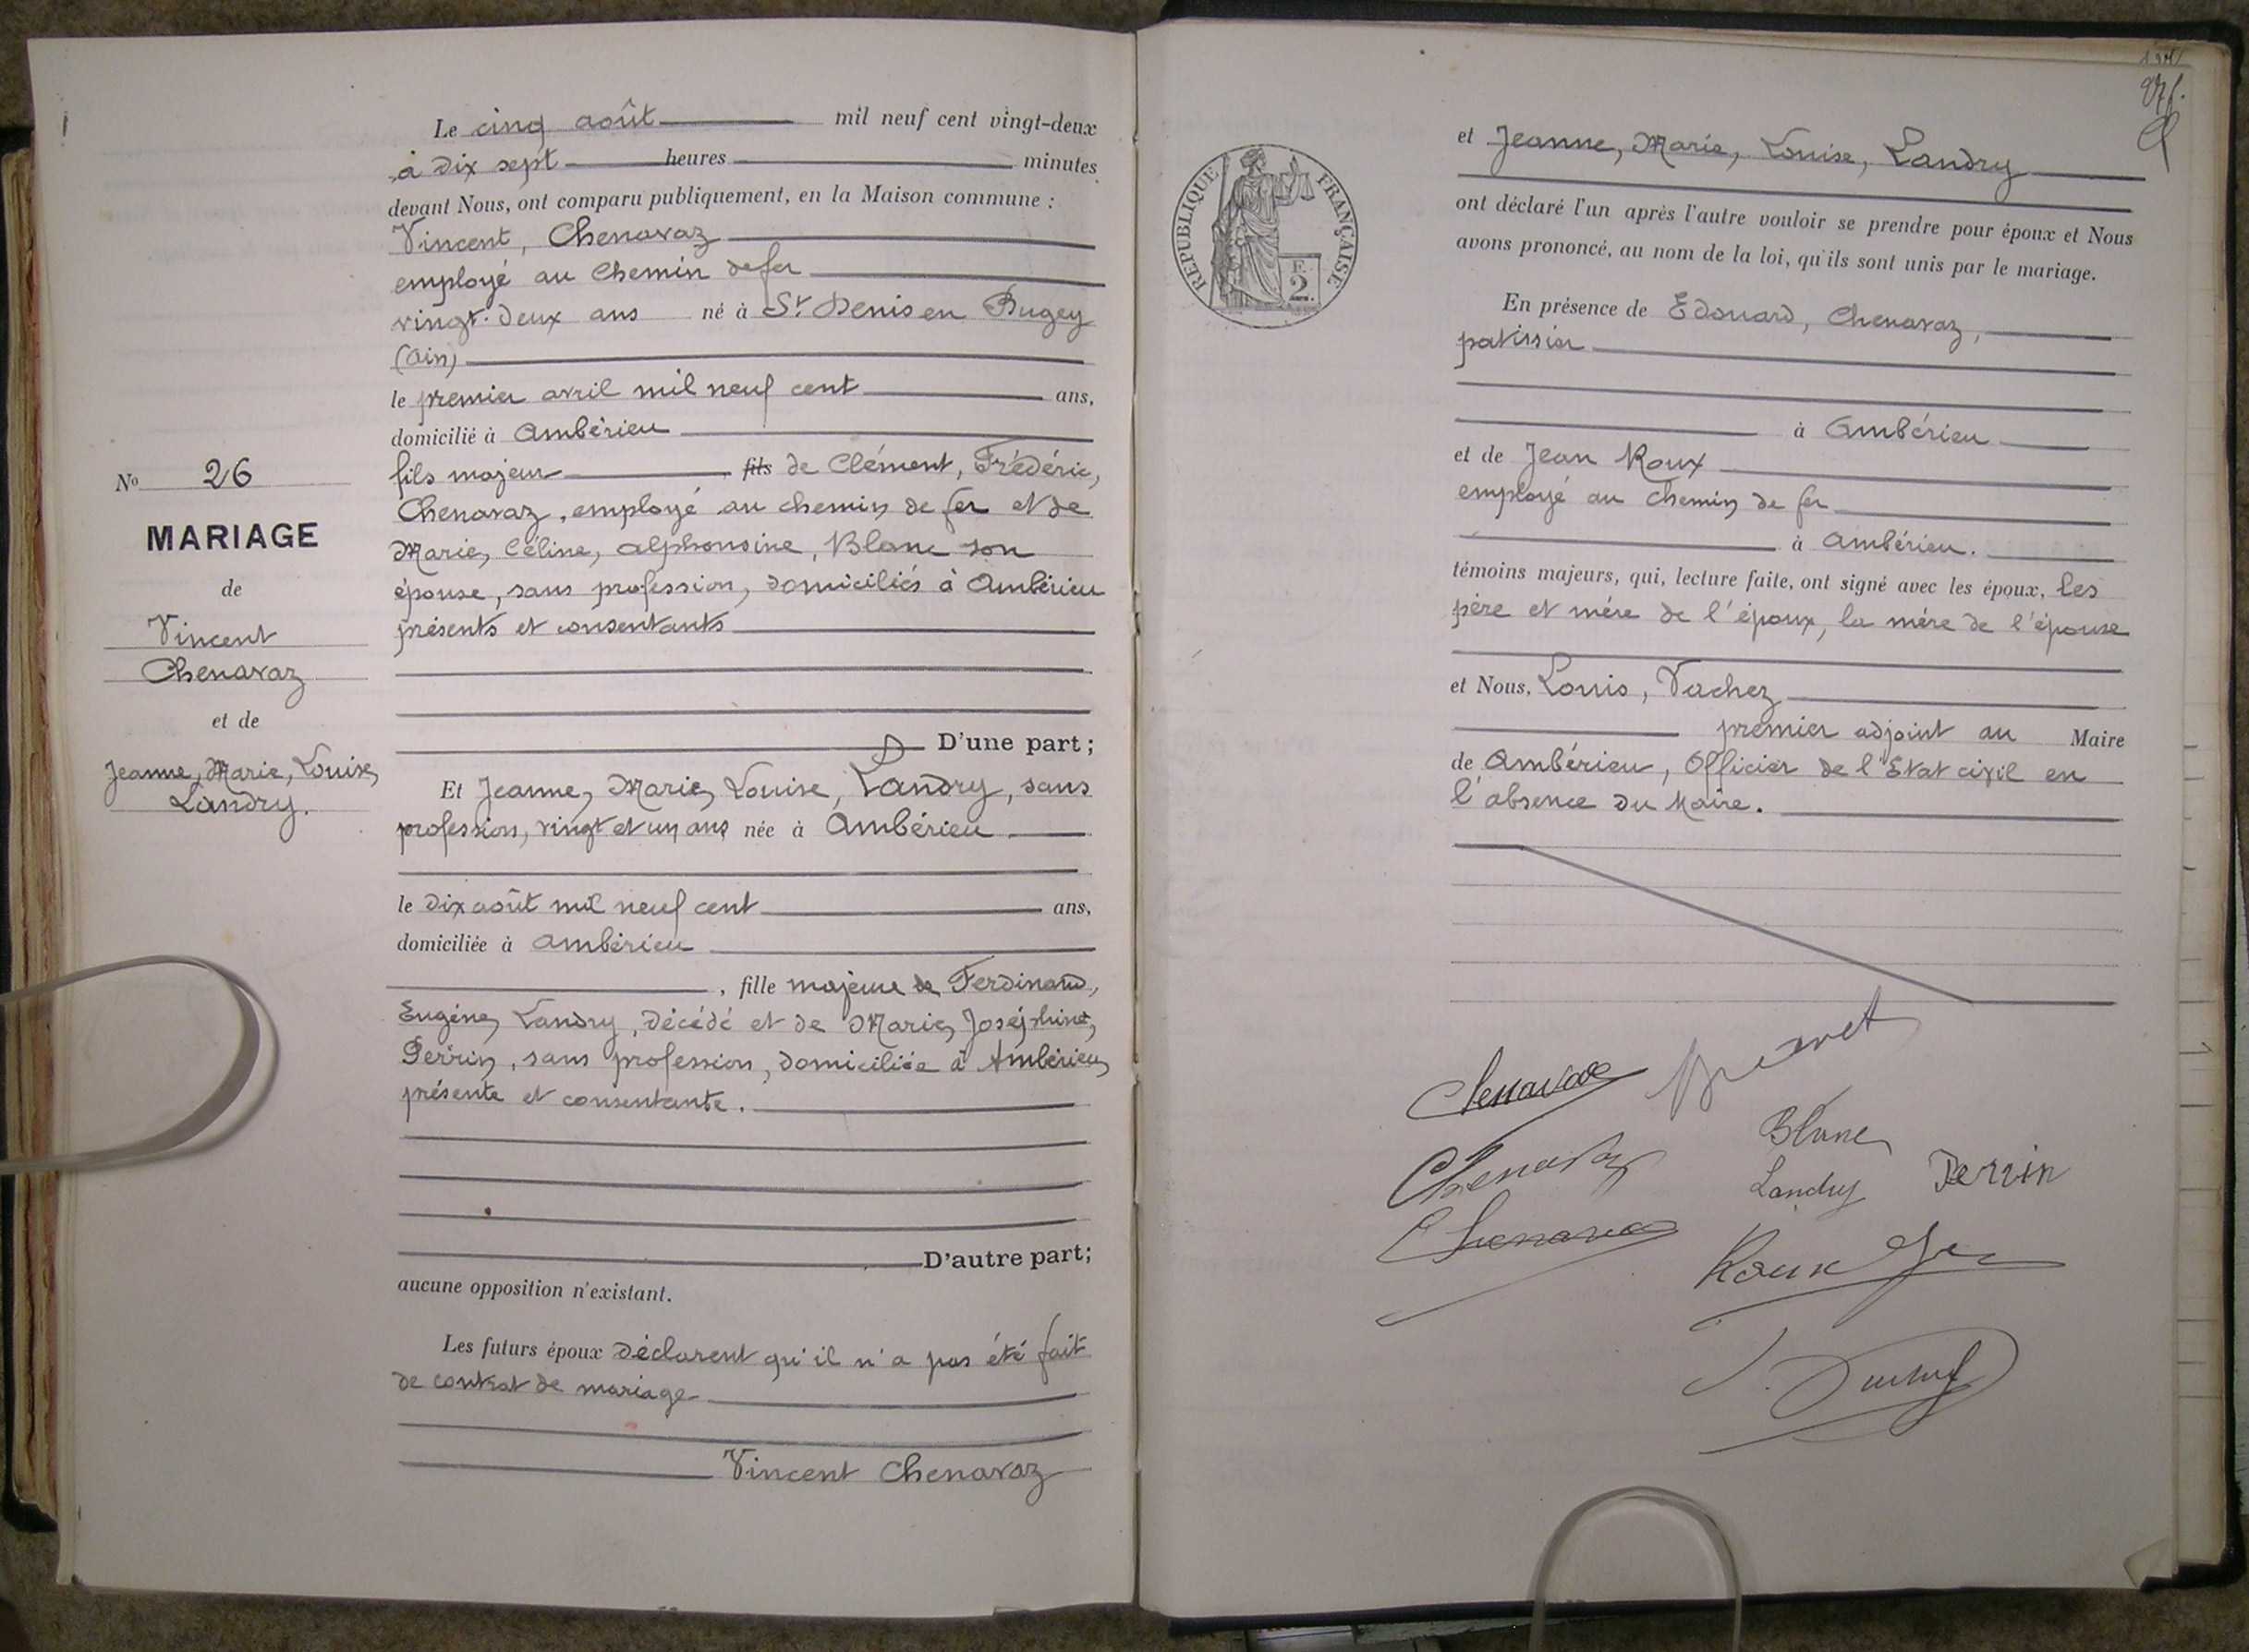 Le cinq août mil neuf cent vingt-deux
à dix sept heures minutes
devant Nous, ont comparu publiquement, en la Maison commune :
Vincent, Chenavaz
employé au Chemin de fer
vingt-deux ans né à St Denis en Bugey
(Ain)
le premier avril mil neuf cent ans,
domicilié à Ambérieu
fils majeur fils de Clément, Frédéric,
Chenavaz, employé au chemin de fer et de
Marie, Céline, Alphonsine, Blanc son
épouse, sans profession, domiciliés à Ambérieu
présents et consentants
D'une part ;
Et Jeanne, Marie, Louise, Landry, sans
profession, vingt et un ans née à Ambérieu
le dix août mil neuf cent ans,
domiciliée à Ambérieu
, fille majeure de Ferdinand,
Eugène, Landry, décédé et de Marie, Joséphine,
Perrin, sans profession, domiciliée à Ambérieu,
présente et consentante.
D'autre part;
aucune opposition n'existant.
Les futurs époux déclarent qu'il n'a pas été fait
de contrat de mariage
Vincent Chenavaz
No 26
MARIAGE
de
Vincent
Chenavaz
et de
Jeanne, Marie, Louise,
Landry.
RÉPUBLIQUE FRANÇAISE
2
et Jeanne, Marie, Louise, Landry
ont déclaré l'un après l'autre vouloir se prendre pour époux et Nous
avons prononcé, au nom de la loi, qu'ils sont unis par le mariage.
En présence de Edouard, Chenavaz,
patissier
à Ambérieu
et de Jean Roux
employé au chemin de fer
à Ambérieu.
témoins majeurs, qui, lecture faite, ont signé avec les époux, les
père et mère de l'époux, la mère de l'épouse
et Nous, Louis, Vachez
premier adjoint au Maire
de Ambérieu, Officier de l'Etat civil en
l'absence du Maire.
Chenavaz
Blanc
Chenavaz
Landry Perrin
Chenavaz
Roux